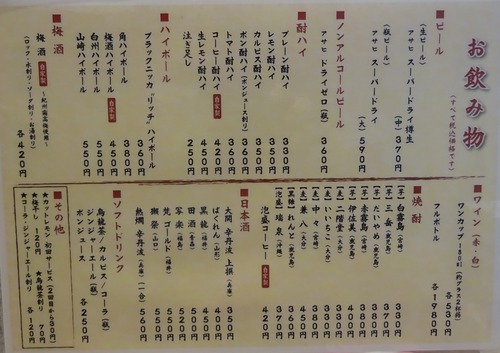 お飲み物
(すべて税込価格です)
■ビール
(生ビール)
アサヒ スーパードライ樽生 (中) 370円
(瓶ビール)
アサヒ スーパードライ (大) 590円
■ノンアルコールビール
アサヒ ドライゼロ (瓶) 360円
■酎ハイ
プレーン酎ハイ 330円
レモン酎ハイ 350円
カルピス酎ハイ 360円
ポンハイ (ポンジュース割り) 360円
トマト酎ハイ 360円
コーヒー酎ハイ 自家製 420円
生レモン酎ハイ 450円
注ぎ足し 250円
■ハイボール
ブラックニッカ"リッチ"ハイボール 360円
角ハイボール 380円
梅酒ハイボール 自家製
白州ハイボール 550円
山崎ハイボール 550円
■梅酒
梅酒 自家製 ～紀州南高梅使用～
(ロック・水割り・ソーダ割り・お湯割り) 各420円
■ワイン (赤・白)
ワンカップ 180ml (約グラス2杯弱) 各530円
フルボトル 各980円
■焼酎
【芋】 白霧島 (宮崎) 330円
【芋】 三岳 (鹿児島) 370円
【芋】 だいやめ (鹿児島) 380円
【芋】 赤霧島 (宮崎)
【芋】 伊佐美 (鹿児島)
【麦】 二階堂 (大分) 330円
【麦】 いいちこ (大分)
【麦】 中々 (宮崎)
【麦】 兼八 (大分)
【黒糖】 れんと (鹿児島) 360円
【泡盛】 瑞泉 (沖縄) 370円
泡盛コーヒー 自家製 420円
■日本酒
大関 辛丹波 上撰 (兵庫) 350円
ばくれん (山形)
黒龍 (福井)
田酒 (青森)
写楽 (福島)
梵 ゴールド (福井)
獺祭 (山口)
熱燗 辛丹波 (兵庫) (一合) 560円
■ソフトドリンク
烏龍茶/カルピス/コーラ(瓶)
ジンジャーエール(瓶)
ポンジュース 各250円
■その他
★カットレモン 初回サービス (2回目から30円)
★梅干し 120円 ★烏龍茶割り 70円
★コーラ・ジンジャーエール割り 各120円